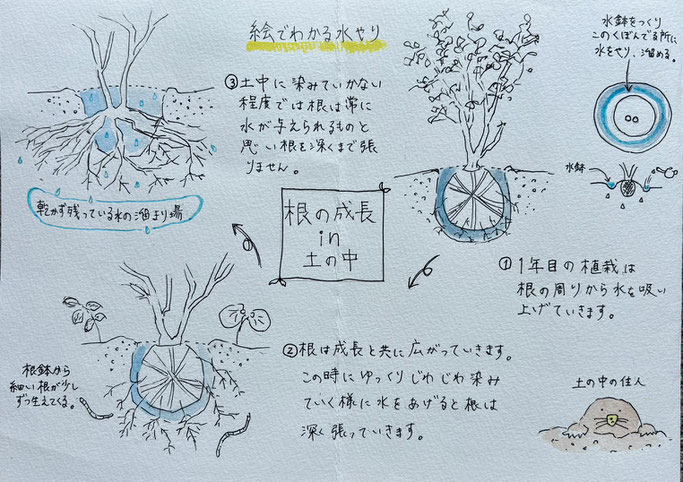 絵でわかる水やり
水鉢をつくり
このくぼんでる所に
水をやり、溜める。
水鉢
根の成長
in
土の中
① 1年目の植栽は
根の周りから水を吸い
上げていきます。
② 根は成長と共に広がっていきます。
この時にゆっくりじわじわ染み
ていく様に水をあげると根は
深く張っていきます。
根鉢から
細い根が少し
ずつ生えてくる。
③ 土中に染みていかない
程度では根は常に
水が与えられるものと
思い根を深くまで張
りません。
乾かず残っている水の溜より場
土の中の住人